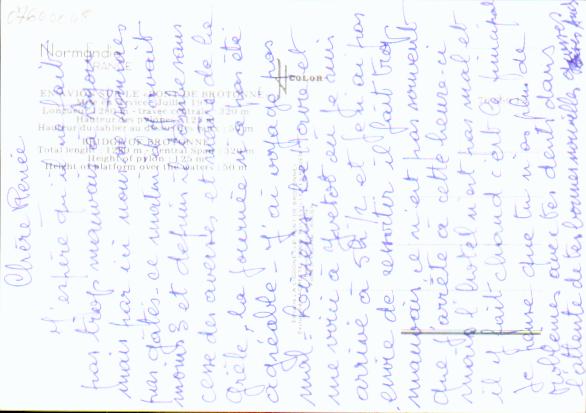 0760
Normandie
FRANCE
COLOR
EN AVION SUR LE PONT DE BROTONNE
Mise en service Juillet
Longueur 1280 m - travée centrale 320 m
Hauteur des pylônes : 125 m
Hauteur du tablier au de 50 m
BRIDGE OF BROTONNE
Total length : 1280 m - Central span : 320 m
Height of pylon : 125 m
Height of platform over the waters : 50 m
Chère Renée
J'espère qu'il ne fait
pas trop mauvais à
mais par ici nous ne sommes
pas gâtés - ce matin il y avait
moins 3 et depuis sans
cesse des averses et même de la
grêle, la journée n'a pas été
agréable - J'ai voyagé pas
mal - Le Havre et
me voici à Yvetot où je suis
arrivé à 5h 1/2 et je n'ai pas
envie de ressortir il fait trop
mauvais ce n'est pas souvent
que j'arrête à cette heure-ci
mais l'hôtel n'est pas mal et
il y fait chaud c'est le principal
Je pense que tu n'as plus de
problèmes avec tes dents dans
l'attente de tes bonnes nouvelles